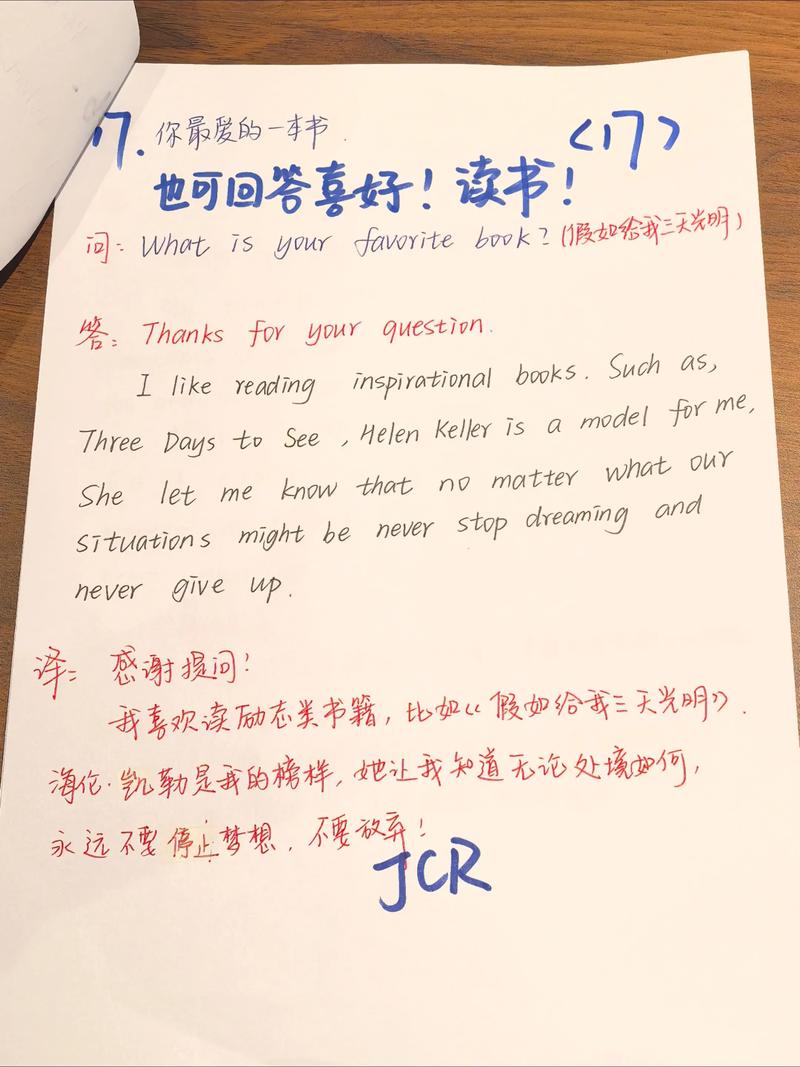 17. 你最爱的一本书. <17>
也可回答喜好！读书！
问: What is your favorite book? (假如给我三天光明)
答: Thanks for your question.
I like reading inspirational books. Such as,
Three Days to See, Helen Keller is a model for me,
She let me know that no matter what our
situations might be never stop dreaming and
never give up.
译: 感谢提问！
我喜欢读励志类书籍, 比如《假如给我三天光明》.
海伦·凯勒是我的榜样, 她让我知道无论处境如何,
永远不要停止梦想, 不要放弃！
JCR